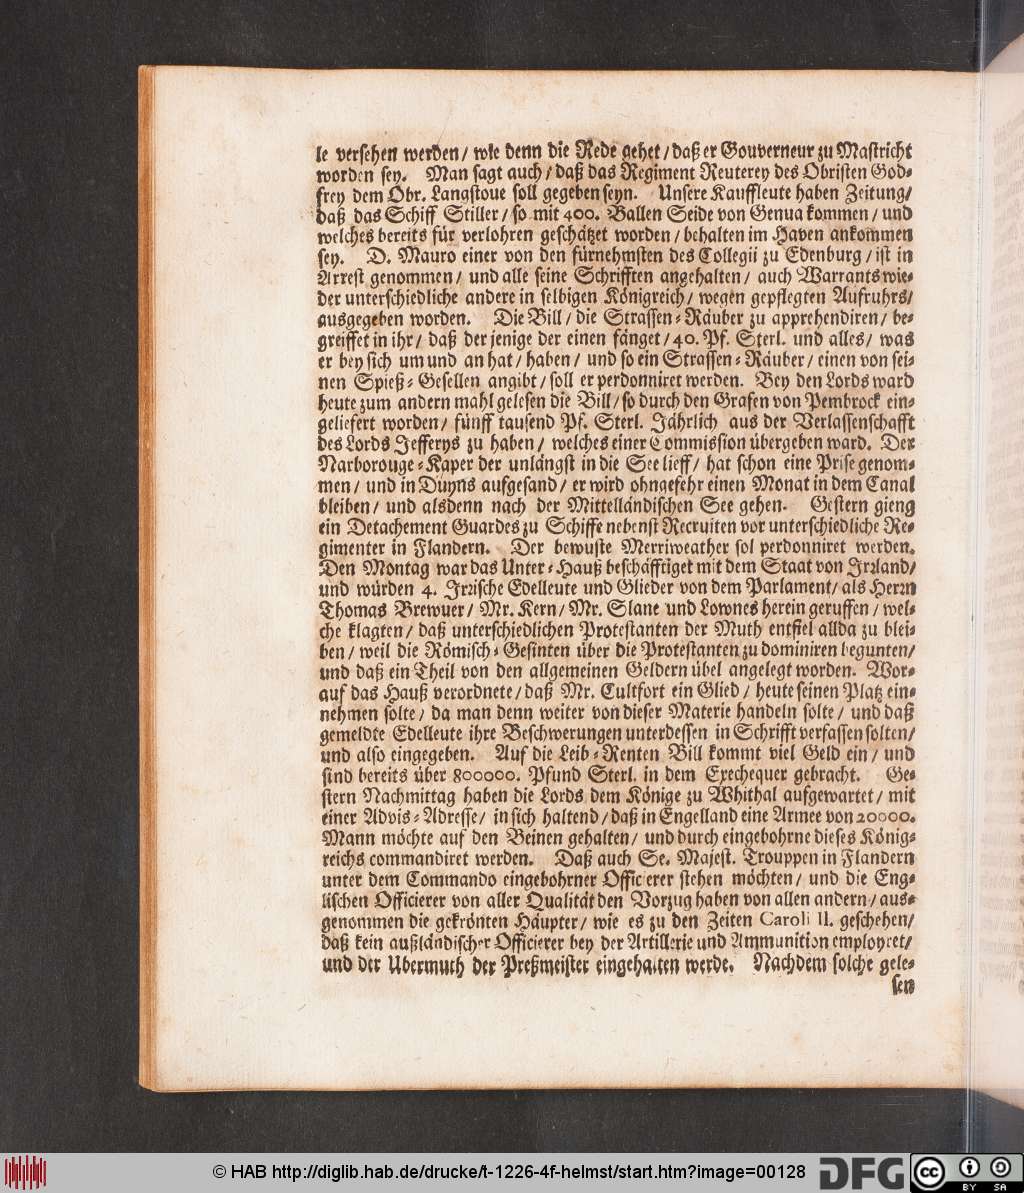 le versehen werden / wie denn die Rede gehet / daß er Gouverneur zu Mastricht
worden sey. Man sagt auch / daß das Regiment Reuterey des Obristen God-
frey dem Obr. Langstoue soll gegeben seyn. Unsere Kauffleute haben Zeitung /
daß das Schiff Stiller / so mit 400. Ballen Seide von Genua kommen / und
welches bereits für verlohren geschätzet worden / behalten im Haven ankommen
sey. D. Mauro einer von den fürnehmsten des Collegii zu Edenburg / ist in
Arrest genommen / und alle seine Schrifften angehalten / auch Warrants wie-
der unterschiedliche andere in selbigen Königreich / wegen gepflegten Aufruhrs /
ausgegeben worden. Die Bill / die Strassen-Räuber zu apprehendiren / be-
greiffet in ihr / daß der jenige der einen fänget / 40. Pf. Sterl. und alles / was
er bey sich um und an hat / haben / und so ein Strassen-Räuber / einen von sei-
nen Spieß-Gesellen angibt / soll er perdonniret werden. Bey den Lords ward
heute zum andern mahl gelesen die Bill / so durch den Grafen von Pembrock ein-
geliefert worden / fünff tausend Pf. Sterl. Jährlich aus der Verlassenschafft
des Lords Jefferys zu haben / welches einer Commission übergeben ward. Der
Narborouge-Kaper der unlängst in die See lieff / hat schon eine Prise genom-
men / und in Duyns aufgesand / er wird ohngefehr einen Monat in dem Canal
bleiben / und alsdenn nach der Mittelländischen See gehen. Gestern gieng
ein Detachement Guardes zu Schiffe nebenst Recruiten vor unterschiedliche Re-
gimenter in Flandern. Der bewuste Merriweather sol perdonniret werden.
Den Montag war das Unter-Hauß beschäfftiget mit dem Staat von Irrland /
und würden 4. Irrische Edelleute und Glieder von dem Parlament / als Herrn
Thomas Brewuer / Mr. Kern / Mr. Slane und Lownes herein geruffen / wel-
che klagten / daß unterschiedlichen Protestanten der Muth entfiel allda zu blei-
ben / weil die Römisch-Gesinten über die Protestanten zu dominiren begunten /
und daß ein Theil von den allgemeinen Geldern übel angelegt worden. Wor-
auf das Hauß verordnete / daß Mr. Cultfort ein Glied / heute seinen Platz ein-
nehmen solte / da man denn weiter von dieser Materie handeln solte / und daß
gemeldte Edelleute ihre Beschwerungen unterdessen in Schrifft verfassen solten /
und also eingegeben. Auf die Leib-Renten Bill kommt viel Geld ein / und
sind bereits über 800000. Pfund Sterl. in dem Exechequer gebracht. Ge-
stern Nachmittag haben die Lords dem Könige zu Whithal aufgewartet / mit
einer Advis-Adresse / in sich haltend / daß in Engelland eine Armee von 20000.
Mann möchte auf den Beinen gehalten / und durch eingebohrne dieses König-
reichs commandiret werden. Daß auch Se. Majest. Trouppen in Flandern
unter dem Commando eingebohrner Officierer stehen möchten / und die Eng-
lischen Officierer von aller Qualität den Vorzug haben von allen andern / aus-
genommen die gekrönten Häupter / wie es zu den Zeiten Caroli II. geschehen /
daß kein außländischer Officierer bey der Artillerie und Ammunition employret /
und der Ubermuth der Preßmeister eingehalten werde. Nachdem solche gele-
sen
© HAB http://diglib.hab.de/drucke/t-1226-4f-helmst/start.htm?image=00128
DFG
cc BY SA